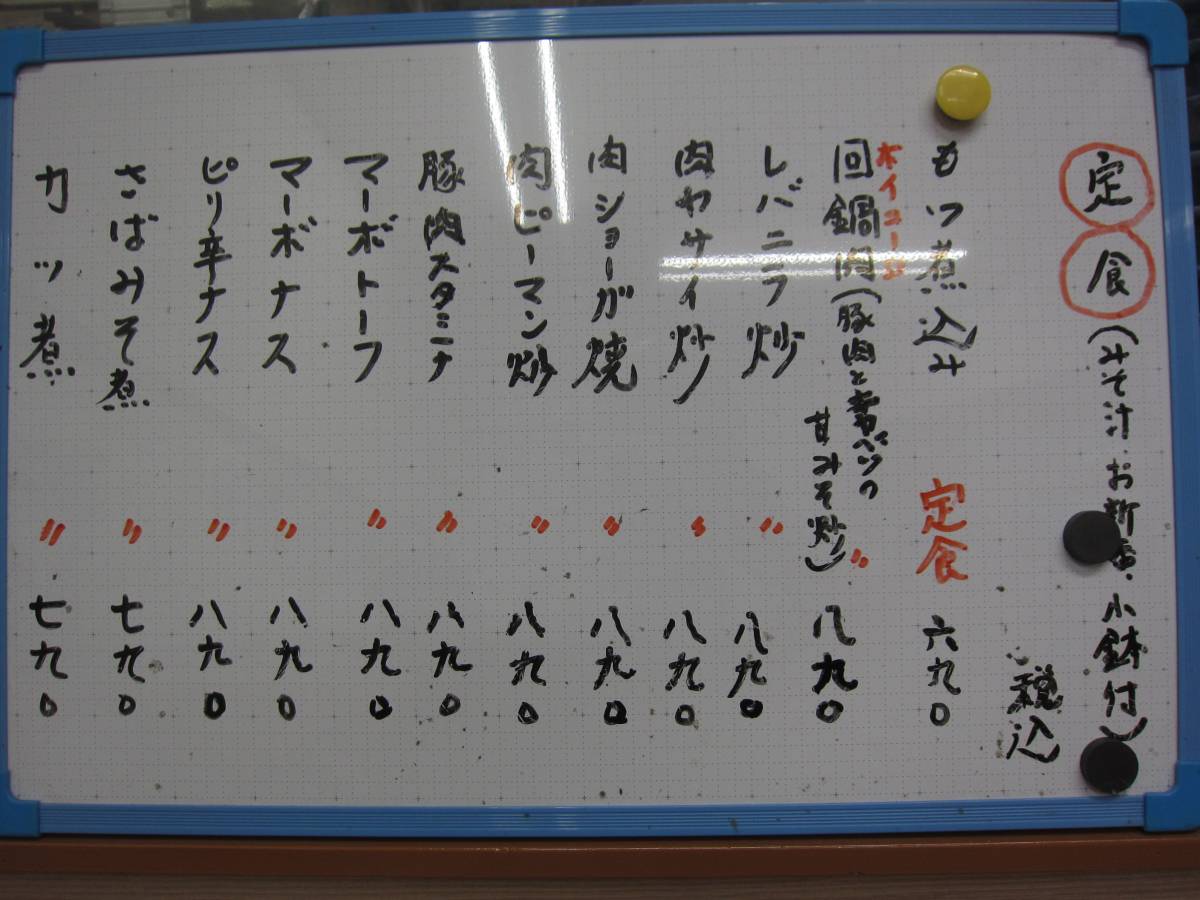 定食(みそ汁.お新香.小鉢付)
税込
もツ煮込み 定食 六九0
ホイコーロ
回鍋肉(豚肉とキャベツの
甘みそ炒) 〃 八九0
レバニラ炒 〃 八九0
肉ヤサイ炒 〃 八九0
肉ショーガ焼 〃 八九0
肉ピーマン炒 〃 八九0
豚肉スタミナ 〃 八九0
マーボトーフ 〃 八九0
マーボナス 〃 八九0
ピリ辛ナス 〃 八九0
さばみそ煮 〃 七九0
カツ煮 〃 七九0